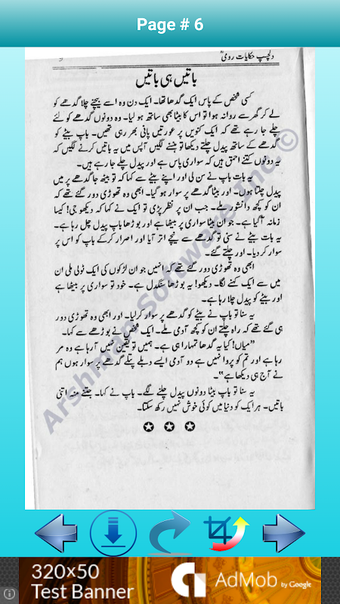 Page # 6
دلچسپ حکایات رومیؒ
باتیں ہی باتیں
کسی شخص کے پاس ایک گدھا تھا۔ ایک دن وہ اسے بیچنے چلا گدھے کو
لے کر گھر سے روانہ ہوا تو اس کا بیٹا بھی ساتھ ہو لیا۔ وہ دونوں گدھے کو لئے
چلے جا رہے تھے کہ ایک کنویں پر عورتیں پانی بھر رہی تھیں۔ باپ بیٹے کو
گدھے کے ساتھ پیدل چلتے دیکھا تو ہنسنے لگیں آپس میں یہ باتیں کرنے لگیں کہ
یہ دونوں کتنے احمق ہیں کہ سواری پاس ہے اور پیدل چلے جا رہے ہیں۔
یہ بات باپ نے سن لی اور اپنے بیٹے سے کہا کہ تو بیٹھ جا گدھے پر میں
پیدل چلتا ہوں۔ اور بیٹا گدھے پر سوار ہو گیا۔ ابھی وہ تھوڑی دور گئے تھے کہ
ان کو کچھ دانشور ملے۔ جب ان پر نظر پڑی تو ایک نے کہا کہ دیکھو جی! کیسا
زمانہ آ گیا ہے۔ جو ان بیٹا سواری پر بیٹھا ہے اور بوڑھا باپ پیدل چل رہا ہے۔
یہ بات بیٹے نے سنی تو گدھے سے نیچے اتر آیا اور اصرار کر کے باپ کو اس پر
سوار کر دیا۔ اور چلتے گئے۔
ابھی وہ تھوڑی دور گئے تھے کہ انہیں جو ان لڑکوں کی ایک ٹولی ملی ان
میں سے ایک کہنے لگا۔ دیکھو! یہ بوڑھا سنگدل ہے۔ خود تو سواری پر بیٹھا ہے
اور بیٹے کو پیدل چلا رہا ہے۔
یہ سنا تو باپ نے بیٹے کو گدھے پر سوار کر لیا۔ اور ابھی وہ تھوڑی دور
ہی گئے تھے کہ راہ چلتے ان کو کچھ آدمی ملے۔ ایک شخص نے بوڑھے سے کہا۔
"میاں! کیا یہ گدھا تمہارا ہی ہے۔ ہمیں تو یقین نہیں آ رہا ہے وہ مر
رہا ہے اور تم کو پروا نہیں ہے دو آدمی ایسے دبلے پتلے گدھے پر سوار ہوں ہم
نے آج ہی دیکھا ہے"۔
یہ سنا تو باپ بیٹا دونوں پیدل چلنے لگے۔ باپ نے کہا۔ جتنے منہ اتنی
باتیں۔ ہر ایک کو دنیا میں کوئی خوش نہیں رکھ سکتا۔
Arshman Software Inc ©
320x50
Test Banner
AdMob by Google